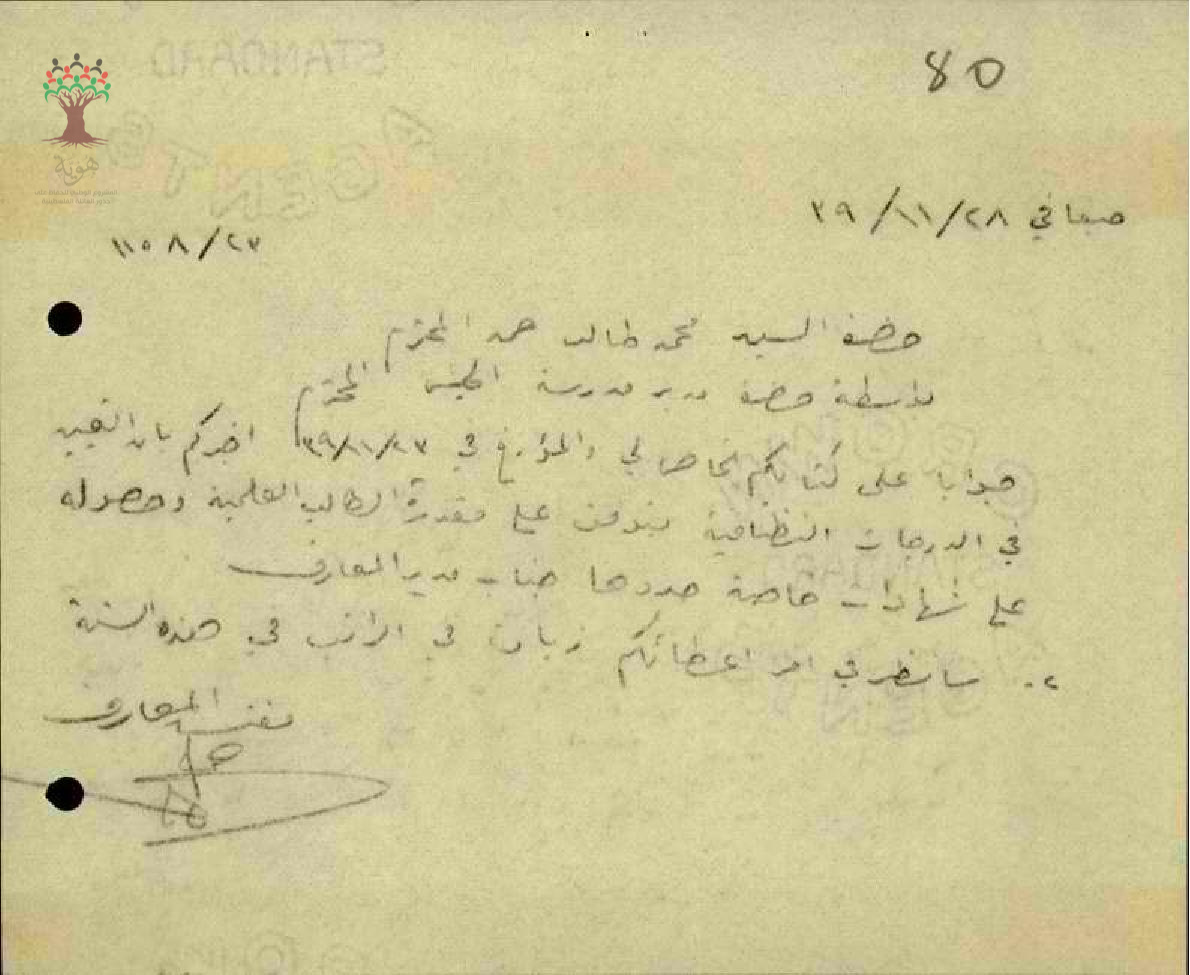 80
حيفا في ٢٨/١١/٣٩
١١٥٨/٢٣
حضرة السيد محمد خالد حمد المحترم
بواسطة حضرة مدير مدرسة المحترم
جوابا على كتابكم الخاص لي والمؤرخ في ٢٣/١١/٣٩ اخبركم بان التعيين
في الدرجات النظامية يتوقف على مقدرة الطالب العلمية وحصوله
على شهادات خاصة حددها جناب مدير المعارف
٢. سانظر في امر اعطائكم زيادة في الراتب في هذه السنة
مفتش المعارف
هوية
STANDARD